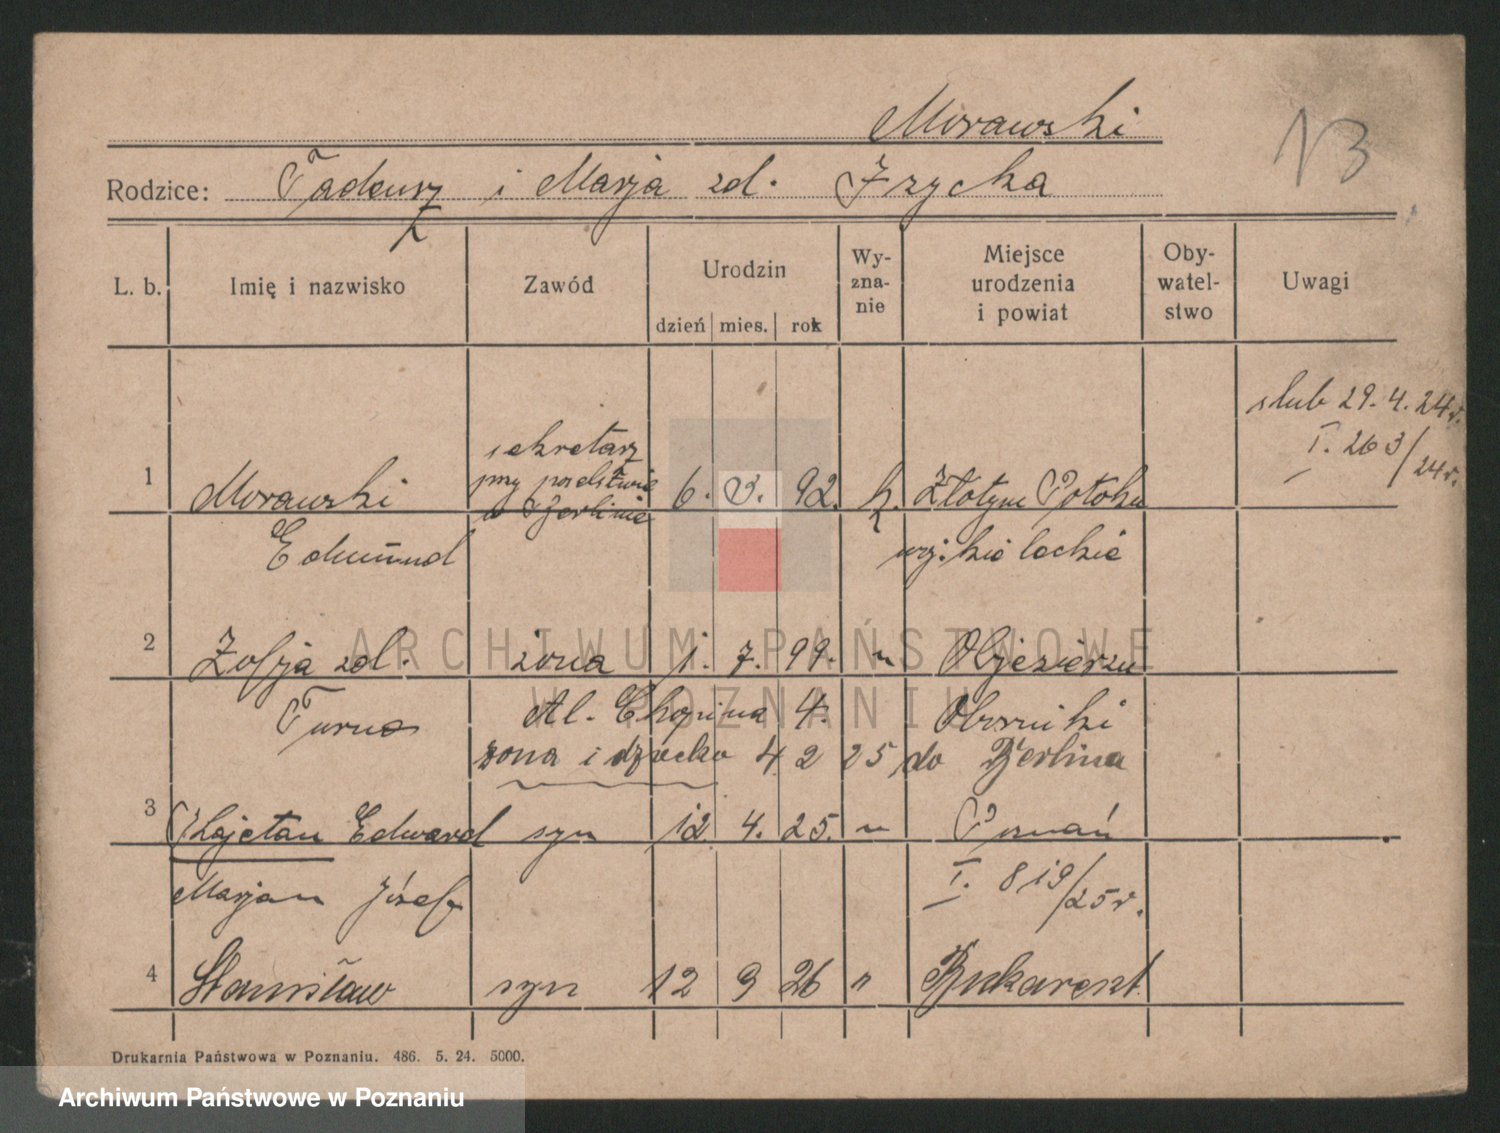 Morawski
13
Rodzice: Tadeusz i Marja zd. Irzycka
L. b. Imię i nazwisko Zawód Urodzin Wy- Miejsce Oby- Uwagi
zna- urodzenia watel-
nie i powiat stwo
dzień mies. rok
ślub 29. 4. 24 r.
I. 263/24 r.
1 Morawski sekretarz 6. 92. k. Złotym Potoku
przy poselstwie
w Berlinie
Edmund kieleckie
2 Zofja zd. żona 1. 7. 99. " Objezierzu
Turno Al. Chopina 4. Oborniki
żona i dziecko 4 2 25 do Berlina
3 Kajetan Edward syn 12 4. 25. " Poznań
Marjan Józef I. 819/25 r.
4 Stanisław syn 12 9 26 " Bukareszt
Drukarnia Państwowa w Poznaniu. 486. 5. 24. 5000.
ARCHIWUM PAŃSTWOWE
W POZNANIU
Archiwum Państwowe w Poznaniu